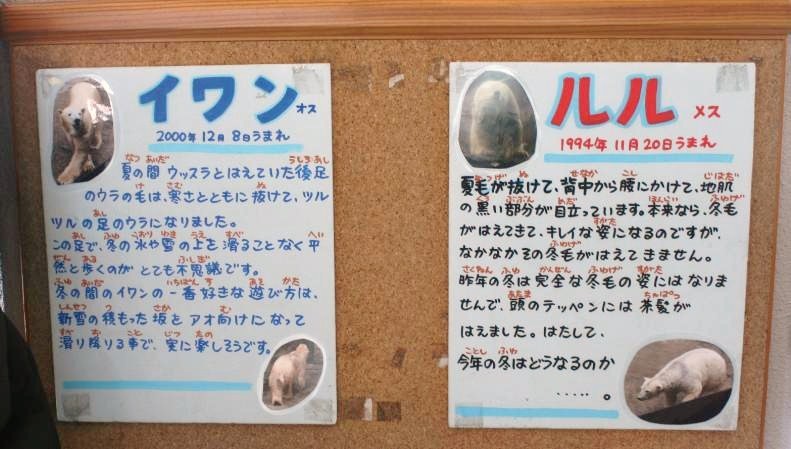 イワン オス
2000年12月8日うまれ
夏の間 ウッスラとはえていた後足
のウラの毛は、寒さとともに抜けて、ツル
ツルの足のウラになりました。
この足で、冬の氷や雪の上を滑ることなく平
然と歩くのが とても不思議です。
冬の間のイワンの一番好きな遊び方は、
新雪の積もった坂とアオ向けになって
滑り降りる事で、実に楽しそうです。
ルル メス
1994年11月20日うまれ
夏毛が抜けて、背中から腰にかけて、地肌
の黒い部分が目立っています。本来なら、冬毛
がはえてきて、キレイな姿になるのですが、
なかなかその冬毛がはえてきません。
昨年の冬は完全な冬毛の姿にはなりま
せんで、頭のテッペンには茶髪が
はえました。はたして、
今年の冬はどうなるのか
‥‥‥。